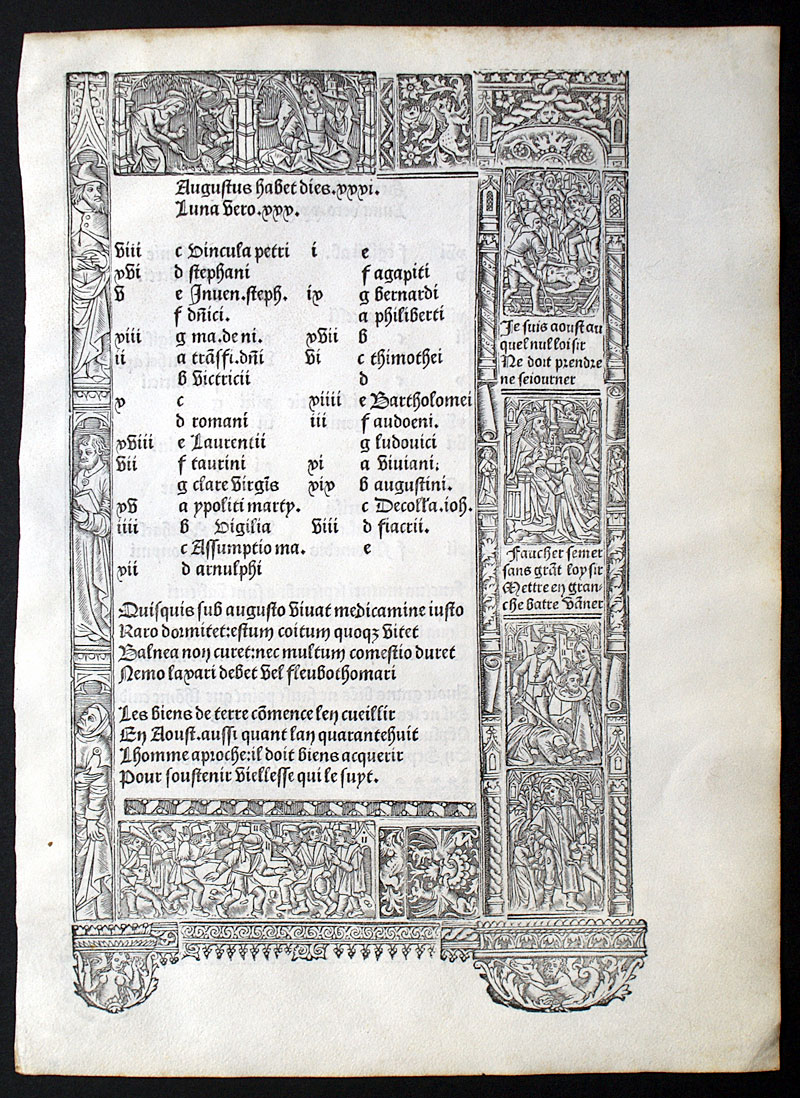 Augustus habet dies.xxxi.
Luna vero.xxx.
viii c Vincula petri
xvi d stephani
v e Inuen.steph.
f dñici.
xiii g ma.de ni.
ii a trãsfi.dñi
b victricii
x c
d romani
xviii e Laurentii
vii f taurini
g clare virgīs
xv a ypoliti marty.
iiii b Vigilia
c Assumptio ma.
xii d arnulphi
i e
f agapiti
ix g bernardi
a philiberti
xvii b
vi c thimothei
d
xiiii e Bartholomei
iii f audoeni.
g ludouici
xi a viuiani.
xix b augustini.
c Decolla.ioh.
viii d fiacrii.
e
Quisquis sub augusto viuat medicamine iusto
Raro dormitet:estum coitum quoqȝ vitet
Balnea non curet:nec multum comestio duret
Nemo laxari debet vel fleubothomari
Les biens de terre cõmence len cueillir
En Aoust.aussi quant lan quarantehuit
Lhomme aproche:il doit biens acquerir
Pour soustenir viellesse qui le suyt.
Je suis aoust au
quel nul loisir
Ne doit prendre
ne seiourner
Faucher semer
sans grãt loysir
Mettre en gran-
che batre vãner